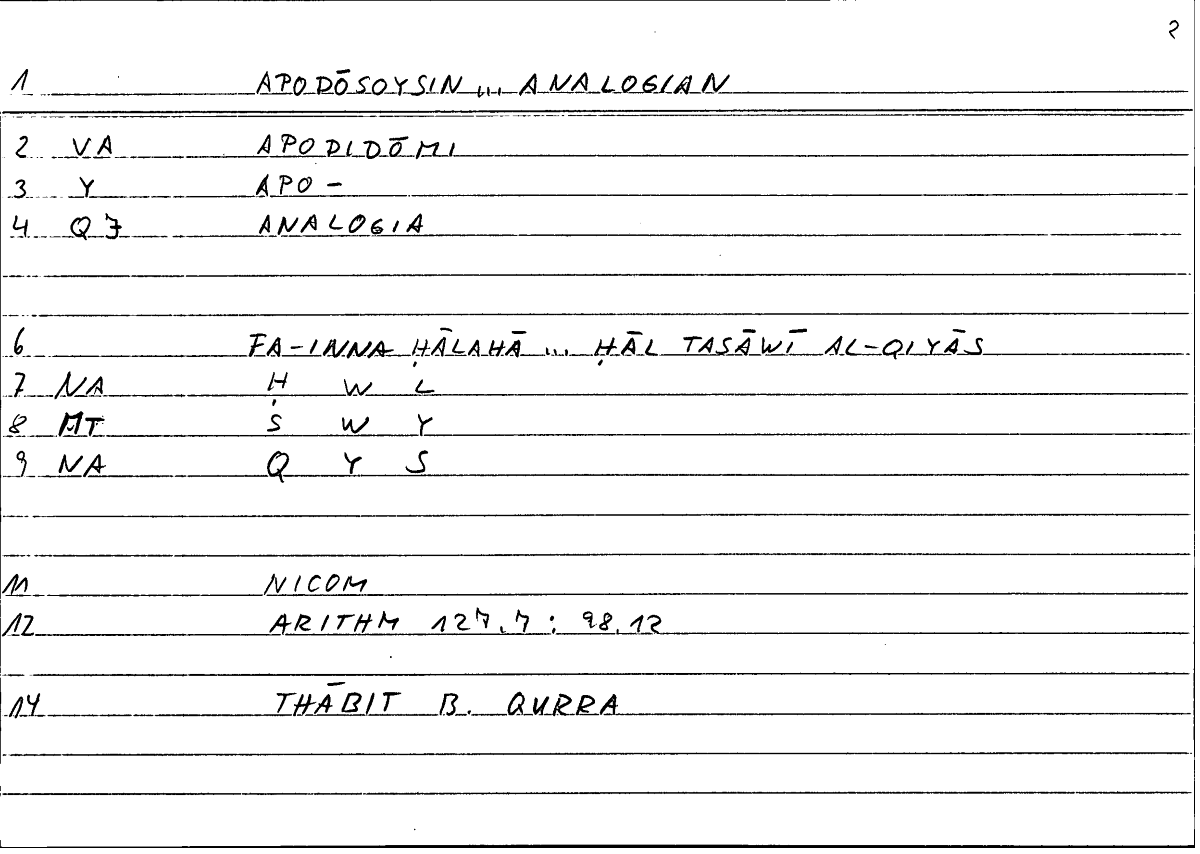 2
1 APODŌSOYSIN ... ANALOGIAN
2 VA APODIDŌMI
3 Y APO-
4 QJ ANALOGIA
6 FA-INNA ḤĀLAHĀ ... ḤĀL TASĀWĪ AL-QIYĀS
7 NA Ḥ W L
8 MT S W Y
9 NA Q Y S
11 NICOM
12 ARITHM 127.7 : 98.12
14 THĀBIT B. QURRA